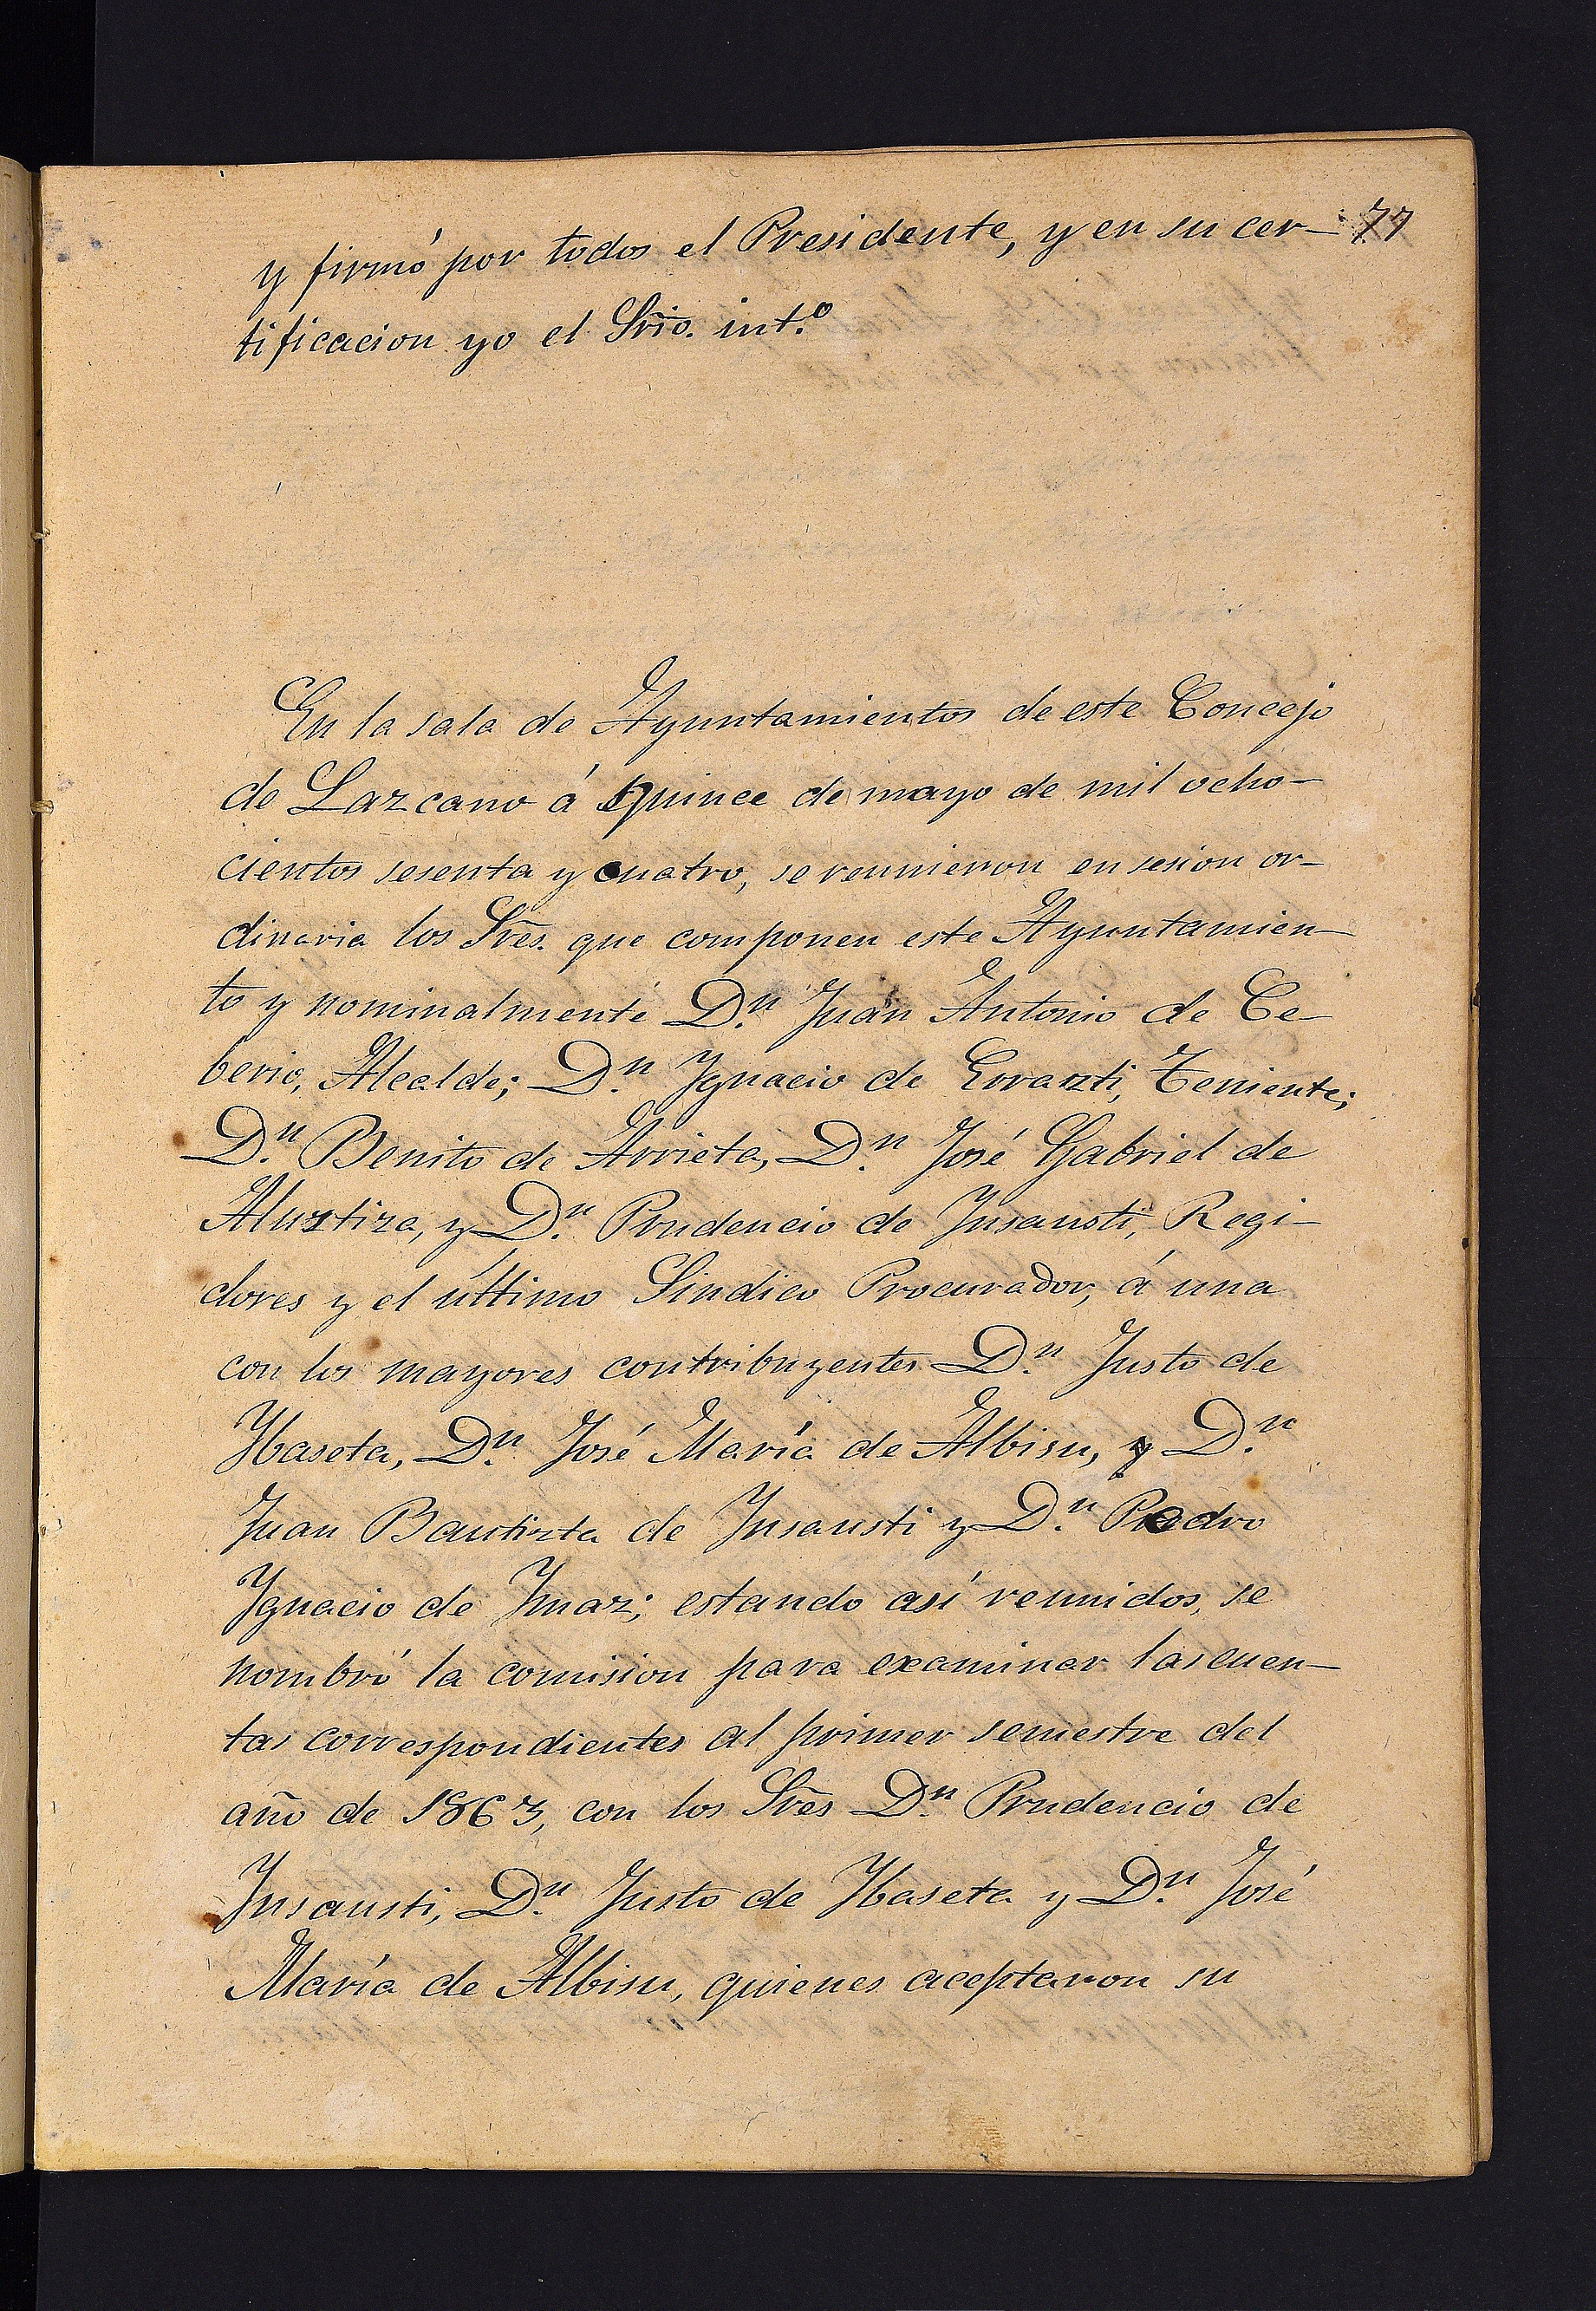 y firmó por todos el Presidente, y en su cer- 77
tificacion yo el Srio. int.º
En la sala de Ayuntamientos de este Concejo
de Lazcano á quince de mayo de mil ocho-
cientos sesenta y cuatro, se reunieron en sesion or-
dinaria los Sres. que componen este Ayuntamien-
to y nominalmente D.n Juan Antonio de Ce-
berio, Alcalde; D.n Ygnacio de Errazti, Teniente;
D.n Benito de Arrieta, D.n José Gabriel de
Alustiza, y D.n Prudencio de Ynsausti, Regi-
dores y el último Sindico Procurador, á una
con los mayores contribuyentes D.n Justo de
Ybaseta, D.n José María de Albisu, y D.n
Juan Bautista de Ynsausti y D.n Pedro
Ygnacio de Ymaz; estando así reunidos, se
nombró la comision para examinar las cuen-
tas correspondientes al primer semestre del
año de 1863, con los Sres D.n Prudencio de
Ynsausti, D.n Justo de Ybaseta y D.n José
María de Albisu, quienes aceptaron su